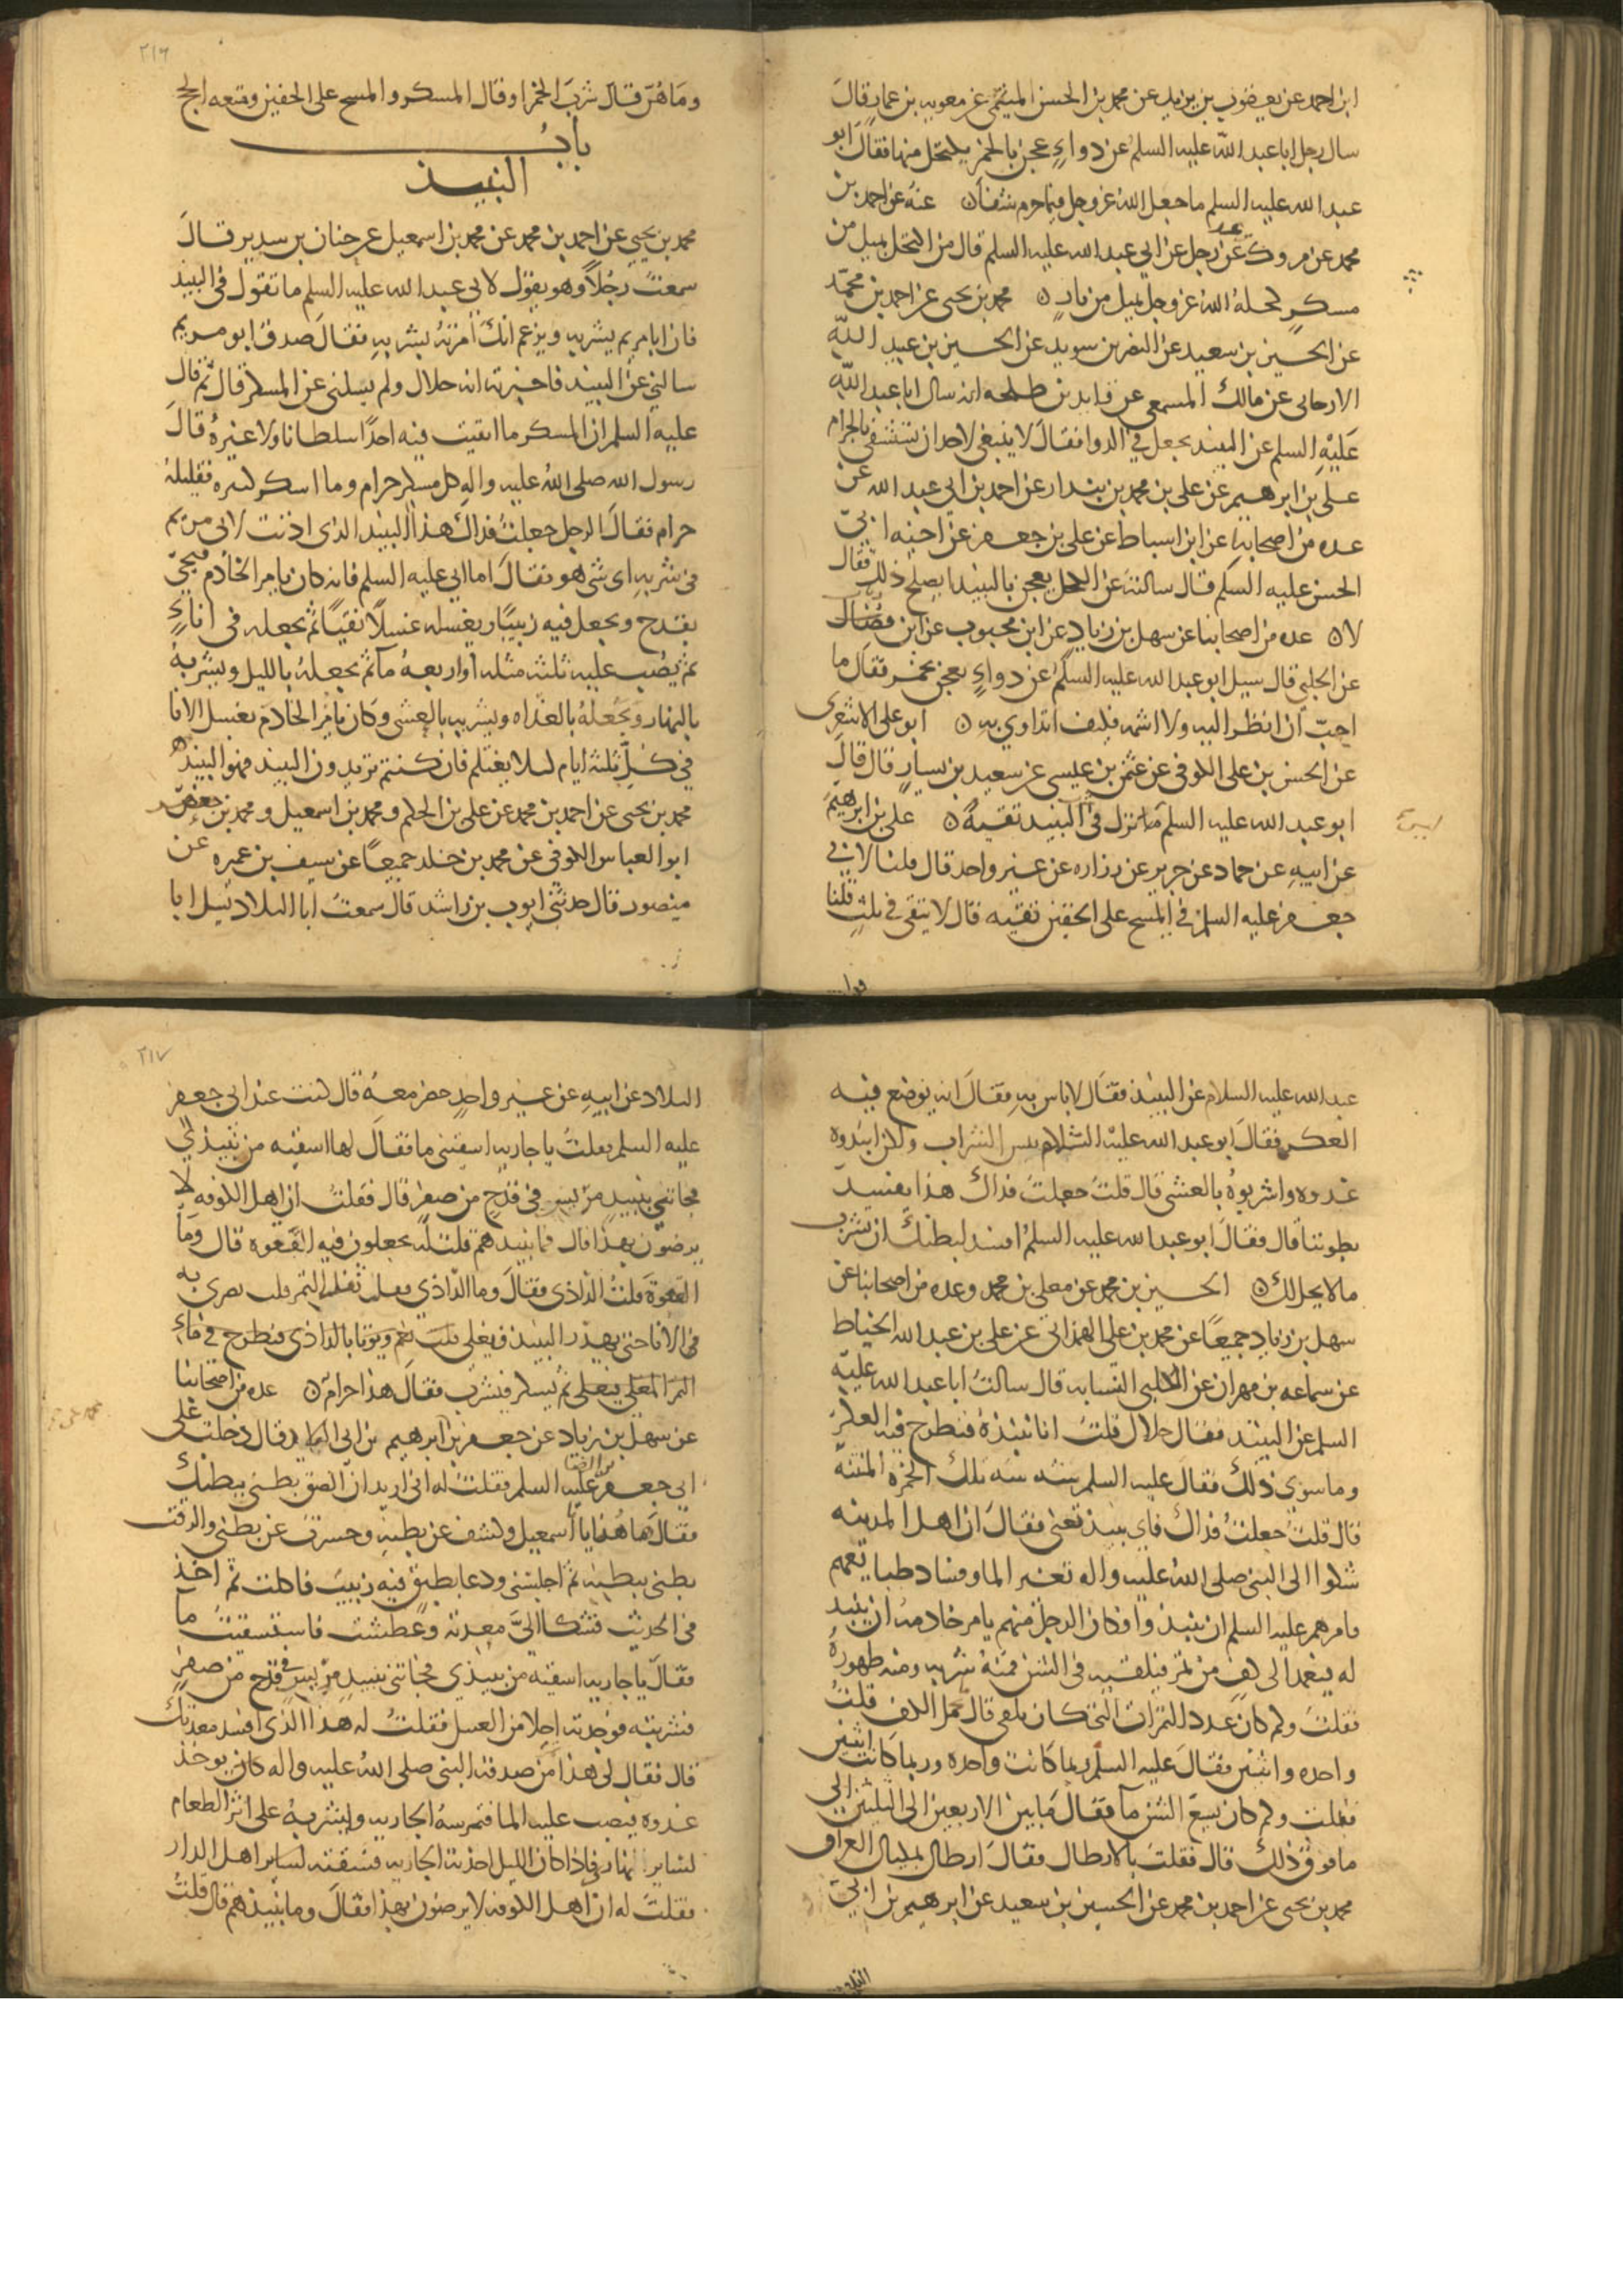 ابن احمد عن يعقوب بن يزيد عن محمد بن الحسن الميثمى عن معويه بن عمار قال
سال رجل ابا عبد الله عليه السلم عن دواءٍ عجن بالخمر يكتحل منها فقال ابو
عبد الله عليه السلم ما جعل الله عز وجل فيما حرم شفاء ن عنه عن احمد بن
محمد عن مروك عن رجل عن ابي عبد الله عليه السلم قال من اكتحل بميل من
مسكرٍ كحله الله عز وجل بميل من نارٍ ن محمد بن يحيى عن احمد بن محمد
عن الحسين بن سعيد عن النضر بن سويد عن الحسين بن عبد الله
الارجانى عن مالك المسمعى عن قايد بن طلحه انه سال ابا عبد الله
عليه السلم عن النبيذ يجعل في الدوا فقال لا ينبغى لاحد ان يستشفى بالحرام
على بن ابرهيم عن على بن محمد بن بندار عن احمد بن ابي عبد الله عن
عده من اصحابه عن ابن اسباط عن على بن جعفر عن اخيه ابي
الحسن عليه السلم قال سالته عن الكحل يعجن بالنبيذ ايصلح ذلك فقال
لا ن عده من اصحابنا عن سهل بن زيادٍ عن ابن محبوب عن ابن
عن الحلبي قال سيل ابو عبد الله عليه السلم عن دواءٍ يعجن بخمر فقال ما
احبّ ان انظر اليه ولا اشمه فكيف اتداوى به ن ابو على الاشعرى
عن الحسن بن على الكوفى عن عثمن بن عيسى عن سعيد بن يسارٍ قال قال
ابو عبد الله عليه السلم ما نزل في النبيذ تقيه ن على بن ابرهيم
عن ابيه عن حماد عن حريز عن زراره عن غير واحد قال قلنا لابي
جعفر عليه السلم في المسح على الخفين تقيه قال لا يتقى في ثلث قلنا
٢١٦
وما هُنّ قال شرب الخمر او قال المسكر والمسح على الخفين ومتعه الحج
بابُ
النبيذ
محمد بن يحيى عن احمد بن محمد عن محمد بن اسمعيل عن حنان بن سدير قال
سمعت رجُلاً وهو يقول لابي عبد الله عليه السلم ما تقول في النبيذ
فان ابا مريم يشربه ويزعم انك امرته بشربه فقال صدق ابو مريم
سالني عن النبيذ فاخبرته انه حلال ولم يسلنى عن المسكر قال ثم قال
عليه السلم ان المسكر ما اتقيت فيه احداً سلطانا ولا غيرهُ قال
رسول الله صلى الله عليه واله كل مسكر حرام وما اسكر كثيره فقليله
حرام فقال الرجل جعلتُ فداك هذا النبيذ الذى اذنت لابي مريم
في شربه اى شى هو فقال اما ابي عليه السلم فانه كان يامر الخادم فيجئ
بقدح ويجعل فيه زبيبًا ويغسله غسلاً نقيًا ثم يجعله في اناءٍ
ثم يصُب عليه ثلثه مثله او اربعه مآ ثم يجعلهُ بالليل ويشربهُ
بالنهار ويجعلهُ بالغداه ويشربه بالعشى وكان يامر الخادم بغسل الانا
في كلّ ثلثه ايام لئلا يغتلم فان كنتم تريدون النبيذ فهو النبيذ
محمد بن يحيى عن احمد بن محمد عن على بن الحكم ومحمد بن اسمعيل ومحمد بن جعفر
ابو العباس الكوفى عن محمد بن خلد جميعًا عن سيف بن عميره عن
منصور قال حدثني ايوب بن راشد قال سمعتُ ابا البلاد يسل ابا
عبد الله عليه السلام عن النبيذ فقال لا باس به فقال انه يوضع فيه
العكر فقال ابو عبد الله عليه السّلام بئس الشراب ولكن انبذوه
غدوه واشربوهُ بالعشى قال قلتُ جعلت فداك هذا يفسد
بطوننا قال فقال ابو عبد الله عليه السلمُ افسد لبطنك ان تشرب
ما لا يحل لك ن الحسين بن محمد عن معلى بن محمد وعده من اصحابنا عن
سهل بن زياد جميعًا عن محمد بن على الهمدانى عن على بن عبد الله الحناط
عن سماعه بن مهران عن الكلبى النسابه قال سالتُ ابا عبد الله عليه
السلم عن النبيذ فقال حلال قلتُ انا ننبذهُ فنطرح فيه العكر
وما سوى ذلك فقال عليه السلم شه شه تلك الخمرة المنتنه
قال قلت جعلتُ فداك فاى نبيذ تعنى فقال ان اهل المدينه
شكوا الى النبي صلى الله عليه واله تغير الما وفساد طبايعهم
فامرهم عليه السلم ان ينبذوا فكان الرجل منهم يامر خادمه ان ينبذ
له فيعمد الى كفٍ من تمر فيلقيه في الشن فمنهُ شربه ومنه طهورهُ
فقلت وكم كان عدد التمرات التى كان يلقى قال حمل الكف قلتُ
واحده واثنتين فقال عليه السلم ربما كانت واحده وربما كانت اثنتين
فقلت وكم كان يسع الشن مآ فقال ما بين الاربعين الى الثلثين الى
ما فوق ذلك قال فقلت بالارطال فقال ارطال بمكيال العراق
محمد بن يحيى عن احمد بن محمد عن الحسين بن سعيد عن ابرهيم بن ابي
٢١٧
البلاد عن ابيه عن غير واحدٍ حضر معهُ قال كنت عند ابي جعفر
عليه السلم فقلتُ يا جاريه اسقينى ما فقال لها اسقيه من نبيذى
فجاتنى بنبيذٍ من بسرٍ في قدحٍ من صفر قال فقلتُ ان اهل الكوفه لا
يرضون بهذا قال فما نبيذهم قلت له يجعلون فيه القعوه قال وما
القعوة قلتُ الداذى فقال وما الداذي فقلت ثفل التمر
في الانا حتى يهدر النبيذ فيغلى
ثم يسكر فيشرب فقال هذا حرام ن عده من اصحابنا
عن سهل بن زياد عن جعفر بن ابرهيم قال دخلت على
ابي جعفر بن الرضا عليه السلم فقلتُ له انى اريد ان الصق بطنى ببطنك
فقال هاهُنا يا ابا اسمعيل وكشف عن بطنه وحسرت عن بطنى والزقت
بطنى ببطنه ثم اجلسنى ودعا بطبق فيه زبيب فاكلت ثم اخذ
في الحديث فشكا اليّ معدته وعطشت فاستسقيتُ مآ
فقال يا جاريه اسقيه من نبيذى فجاتنى بنبيذٍ من بسرٍ في قدح من صفرٍ
فشربته فوجدته احلا من العسل فقلتُ له هذا الذى افسد معدتك
قال فقال لى هذا من صدقه النبي صلى الله عليه واله كان يوخذ
غدوه فيصب عليه الما فتمرسه الجاريه واشربه على اثر الطعام
لساير نهارى فاذا كان الليل اخذته الجاريه فسقته لساير اهل الدار
فقلت له ان اهل الكوفه لا يرضون بهذا فقال وما نبيذهم قال قلتُ